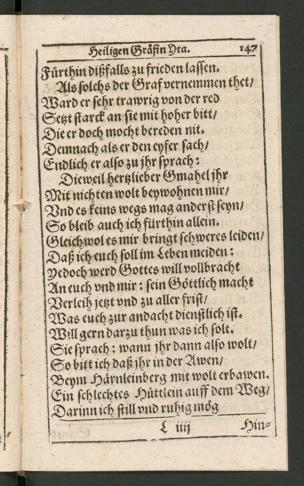 Heiligen Gräfin Yta. 147
Fürthin dißfalls zu frieden lassen.
Als solchs der Graf vernemmen thet/
Ward er sehr trawrig von der red
Setzt starck an sie mit hoher bitt/
Die er doch mocht bereden nit.
Demnach als er den eyfer sach/
Endlich er also zu jhr sprach:
Dieweil hertzlieber Gmahel jhr
Mit nichten wolt beywohnen mir/
Vnd es keins wegs mag anderst seyn/
So bleib auch ich fürthin allein.
Gleichwol es mir bringt schweres leiden/
Daß ich euch soll im Leben meiden:
Yedoch werd Gottes will vollbracht
An euch vnd mir: sein Göttlich macht
Verleih jetzt vnd zu aller frist/
Was euch zur andacht dienstlich ist.
Will gern darzu thun was ich solt.
Sie sprach: wann jhr dann also wolt/
So bitt ich daß jhr in der Awen/
Beym Härnleinberg mit wolt erbawen.
Ein schlechtes Hüttlein auff dem Weg/
Darinn ich still vnd ruhig mög
L iiij Hin=